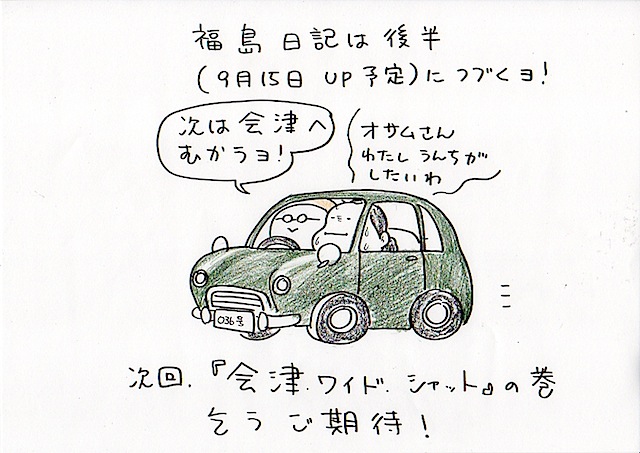 福島日記は後半
(9月15日 UP予定)につづくヨ!
次は会津へ
むかうヨ!
オサムさん
わたし うんちが
したいわ
036号
次回、『会津.ワイド.シャット』の巻
乞うご期待!